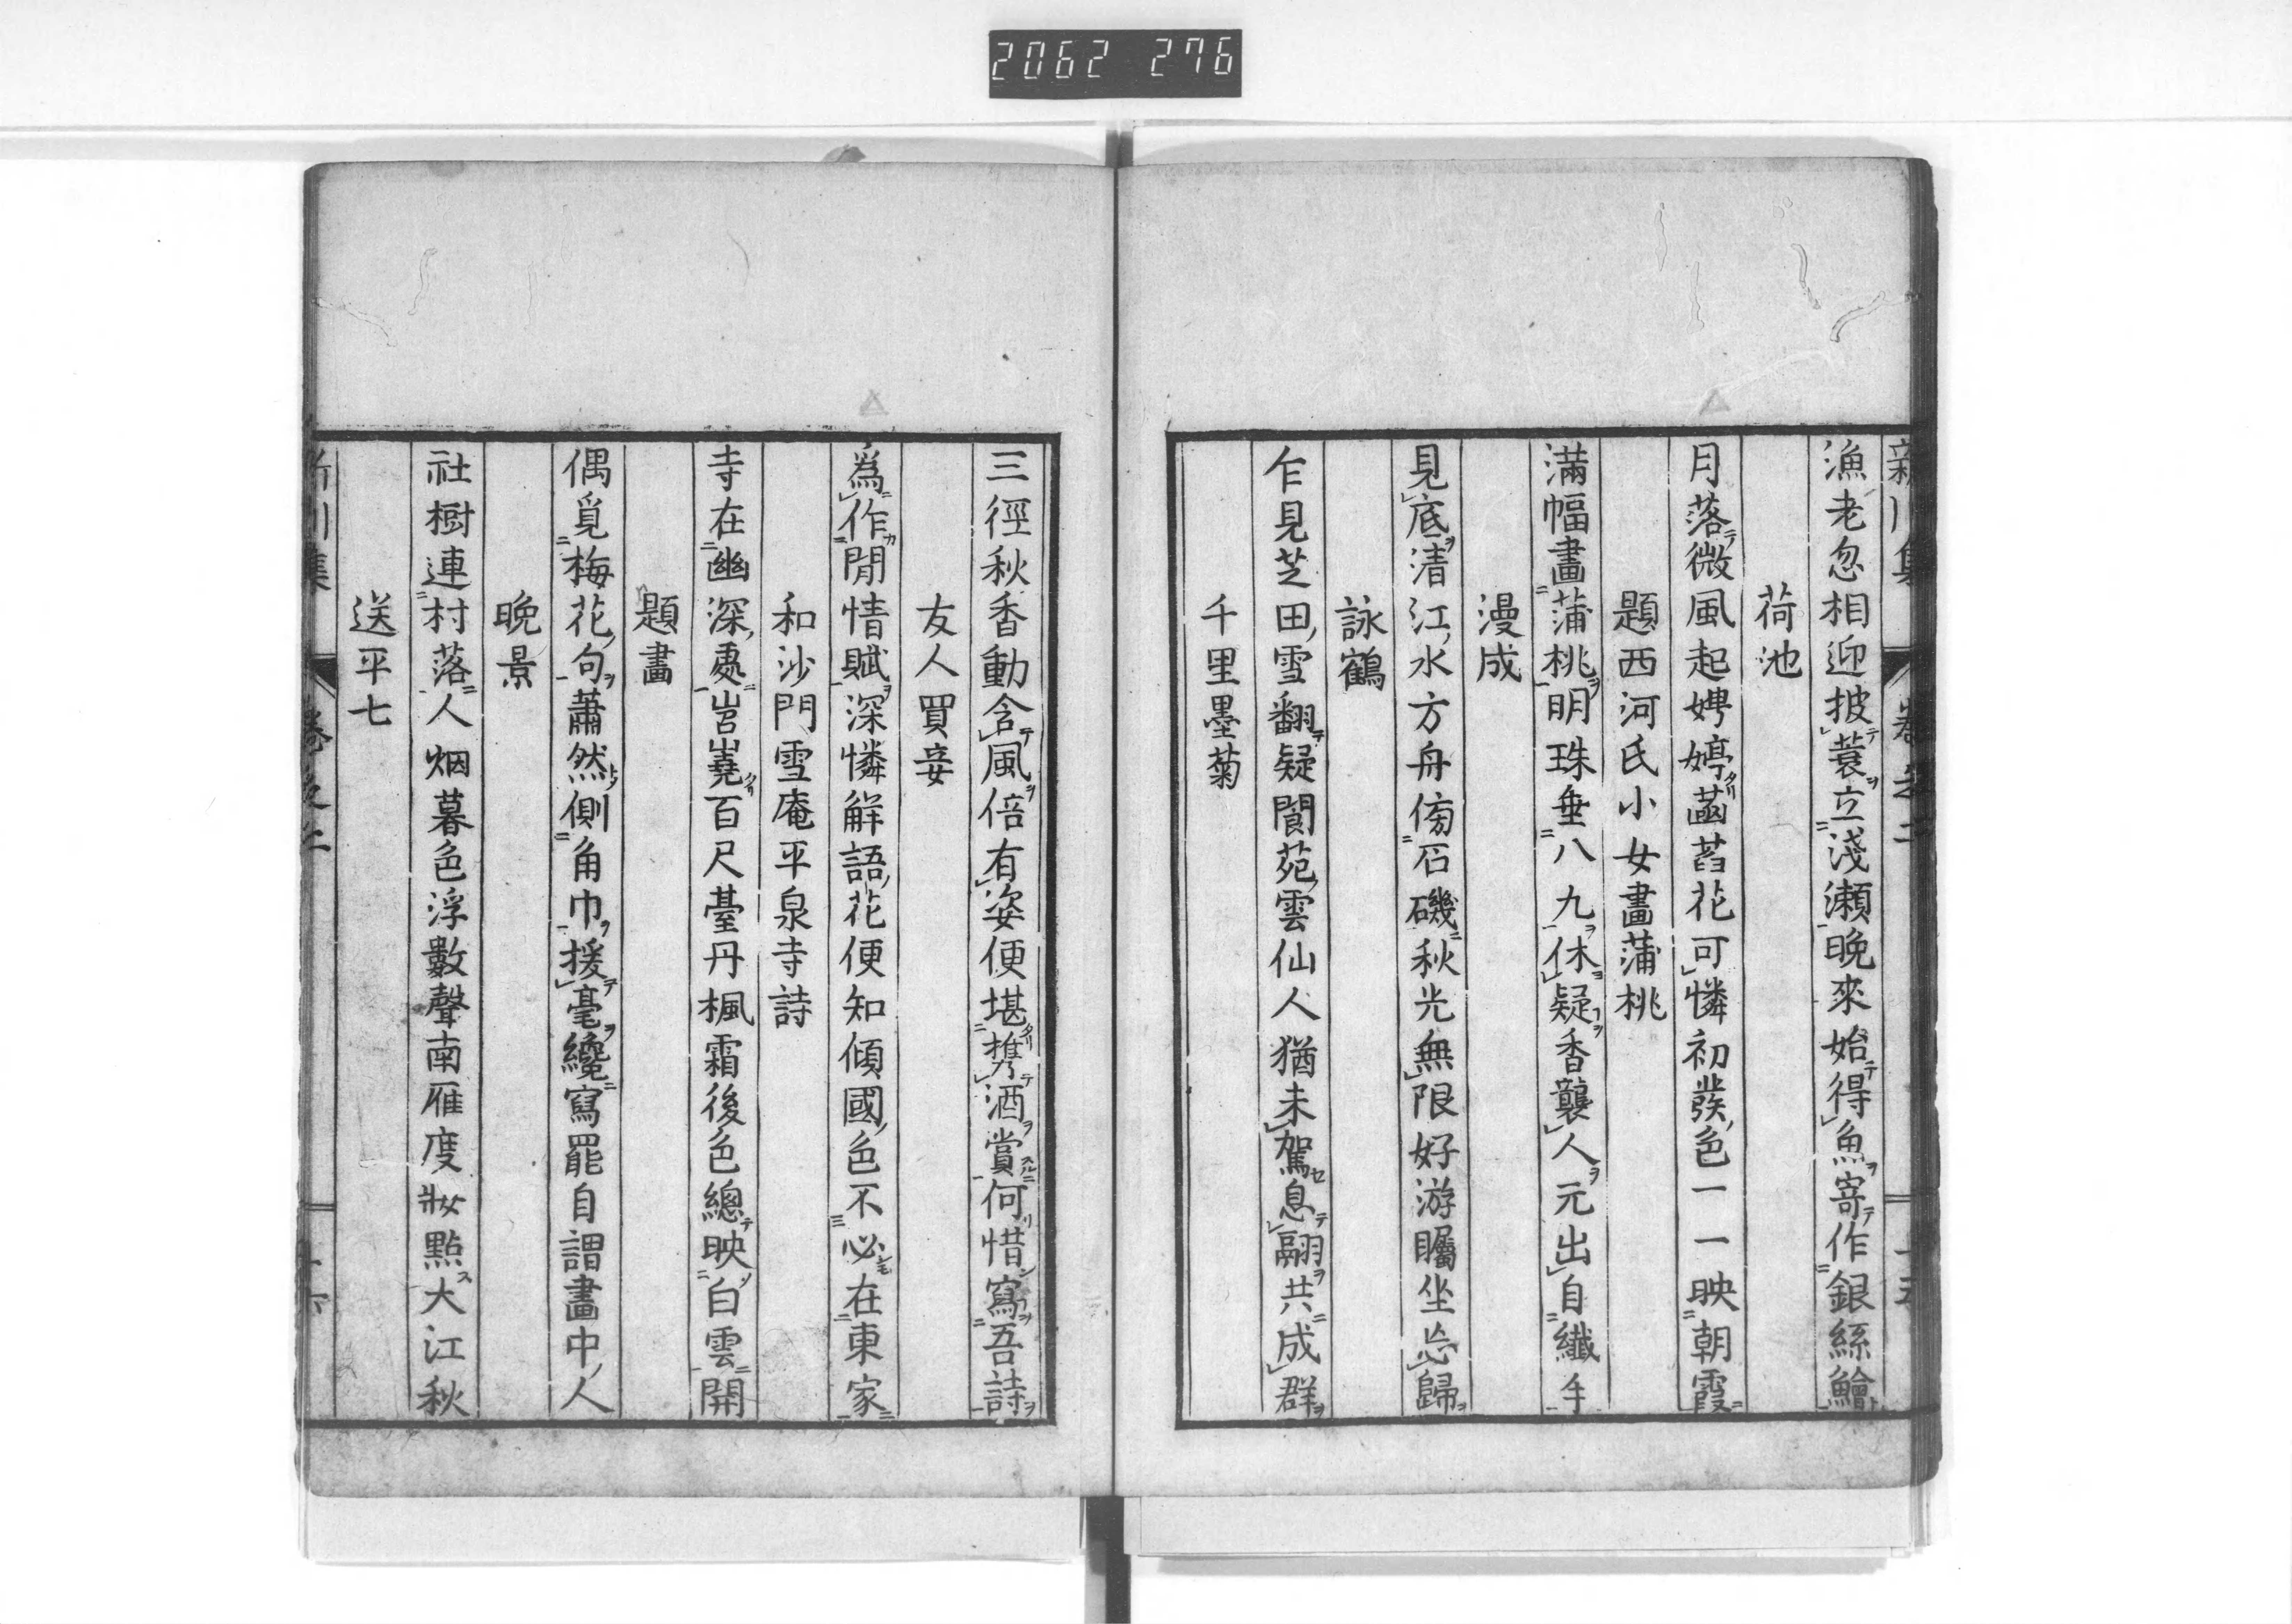 2062 276
漁老忽相迎披蓑立淺瀬晩來始得魚寄作銀絲鱠
荷池
月落微風起娉婷菡萏花可憐初發色一一映朝霞
題西河氏小女畫蒲桃
滿幅畫蒲桃明珠垂八九休疑香襲人元出自纖手
漫成
見底清江水方舟傍石磯秋光無限好游矚坐忘歸
詠鶴
乍見芝田雪翻疑閬苑雲仙人猶未駕息翮共成群
千里墨菊
三徑秋香動含風倍有姿便堪攜酒賞何惜寫吾詩
友人買妾
爲作閒情賦深憐解語花便知傾國色不必在東家
和沙門雪庵平泉寺詩
寺在幽深處岧嶤百尺臺丹楓霜後色總映白雲開
題畫
偶覓梅花句蕭然側角巾援毫纔寫罷自謂畫中人
晩景
社樹連村落人烟暮色浮數聲南雁度妝點大江秋
送平七